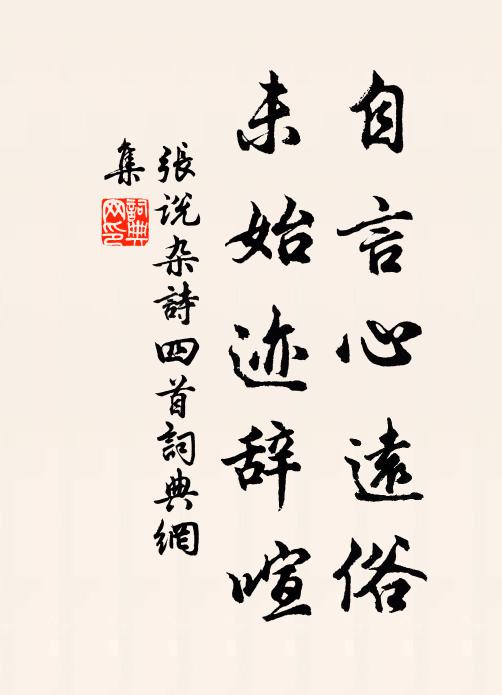 自言心遠俗
未始迹辞喧
張说杂詩四首詞典網
集
詞典
网印